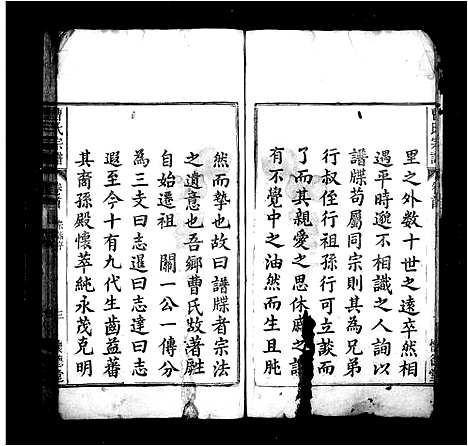 里之外數十世之遠卒然相
遇平時邈不相識之人詢以
譜牒苟屬同宗則其為兄弟
行叔侄行祖孫行可立談而
了而其親愛之思休戚之誼
有不覺中之油然而生且肫
然而摯也故曰譜牒者宗法
之遺意也吾鄉曹氏啟著
自始遷祖 關一公一傳分
為三支曰志暹曰志達曰志
遐至今十有九代生齒益蕃
其裔孫殿懷萃純永茂克明
曹氏宗譜
卷首
三